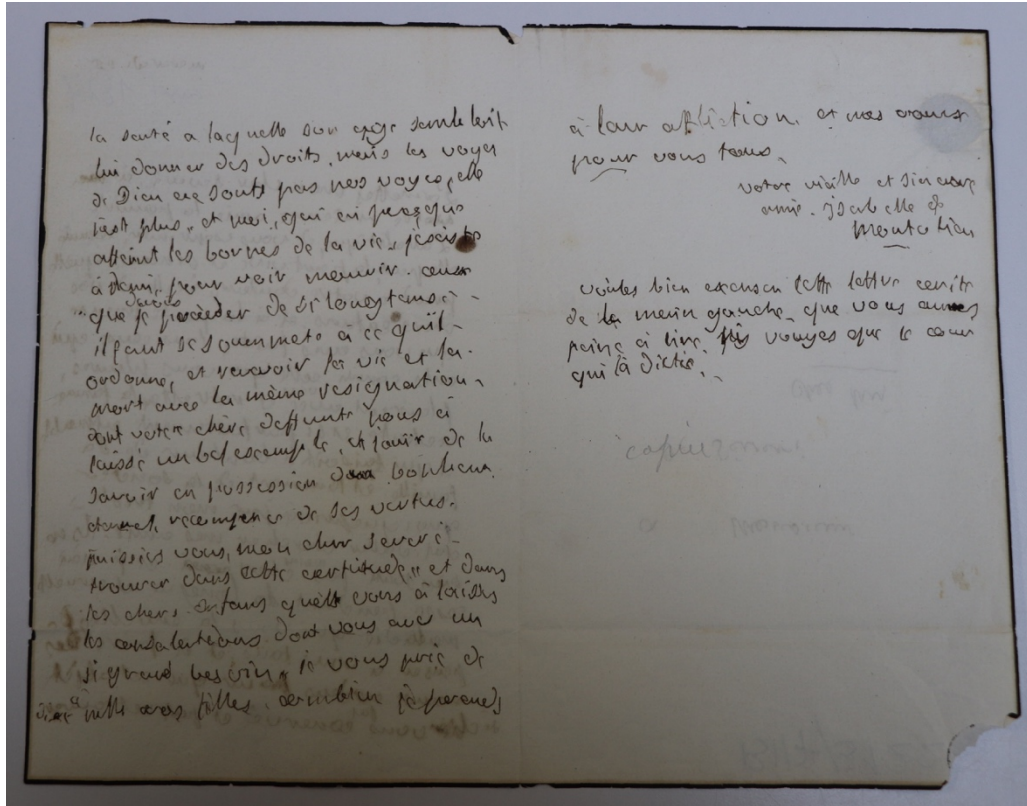 la santé a laquelle son age sembleroit
lui donner des droits, mais les voyes
de Dieu ne sonts pas nos voyes, elle
n'est plus, et moi, qui ai presque
atteint les bornes de la vie, j'existe
pour voir mourir ceux
que je de si longtems
il faut se soumettre à ce qu'il
ordonne, et recevoir la vie et la
mort avec la même resignation
dont votre chère deffunte nous a
laissé un bel exemple, et jouir de la
savoir en possession du bonheur
éternel, recompense de ses vertus.
puissiés vous, mon cher
trouver dans cette certitude, et dans
les chers enfans qu'elle vous à laissés
les consolations dont vous avés un
si grand besoin, je vous prie de
dire à vos filles, combien je prends
à leur affliction, et nos vœux
pour vous tous.
votre vieille et sincère
amie. Isabelle de
Montolieu
voulés bien excuser cette lettre ecrite
de la main gauche, que vous aurés
peine à lire, voyes que le cœur
qui l'à dictée.